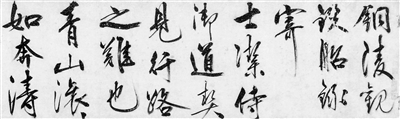 銅陵觀
鐵船錄
寄
士潔侍
御道契
見行路
之難也
青山滾々
如奔濤